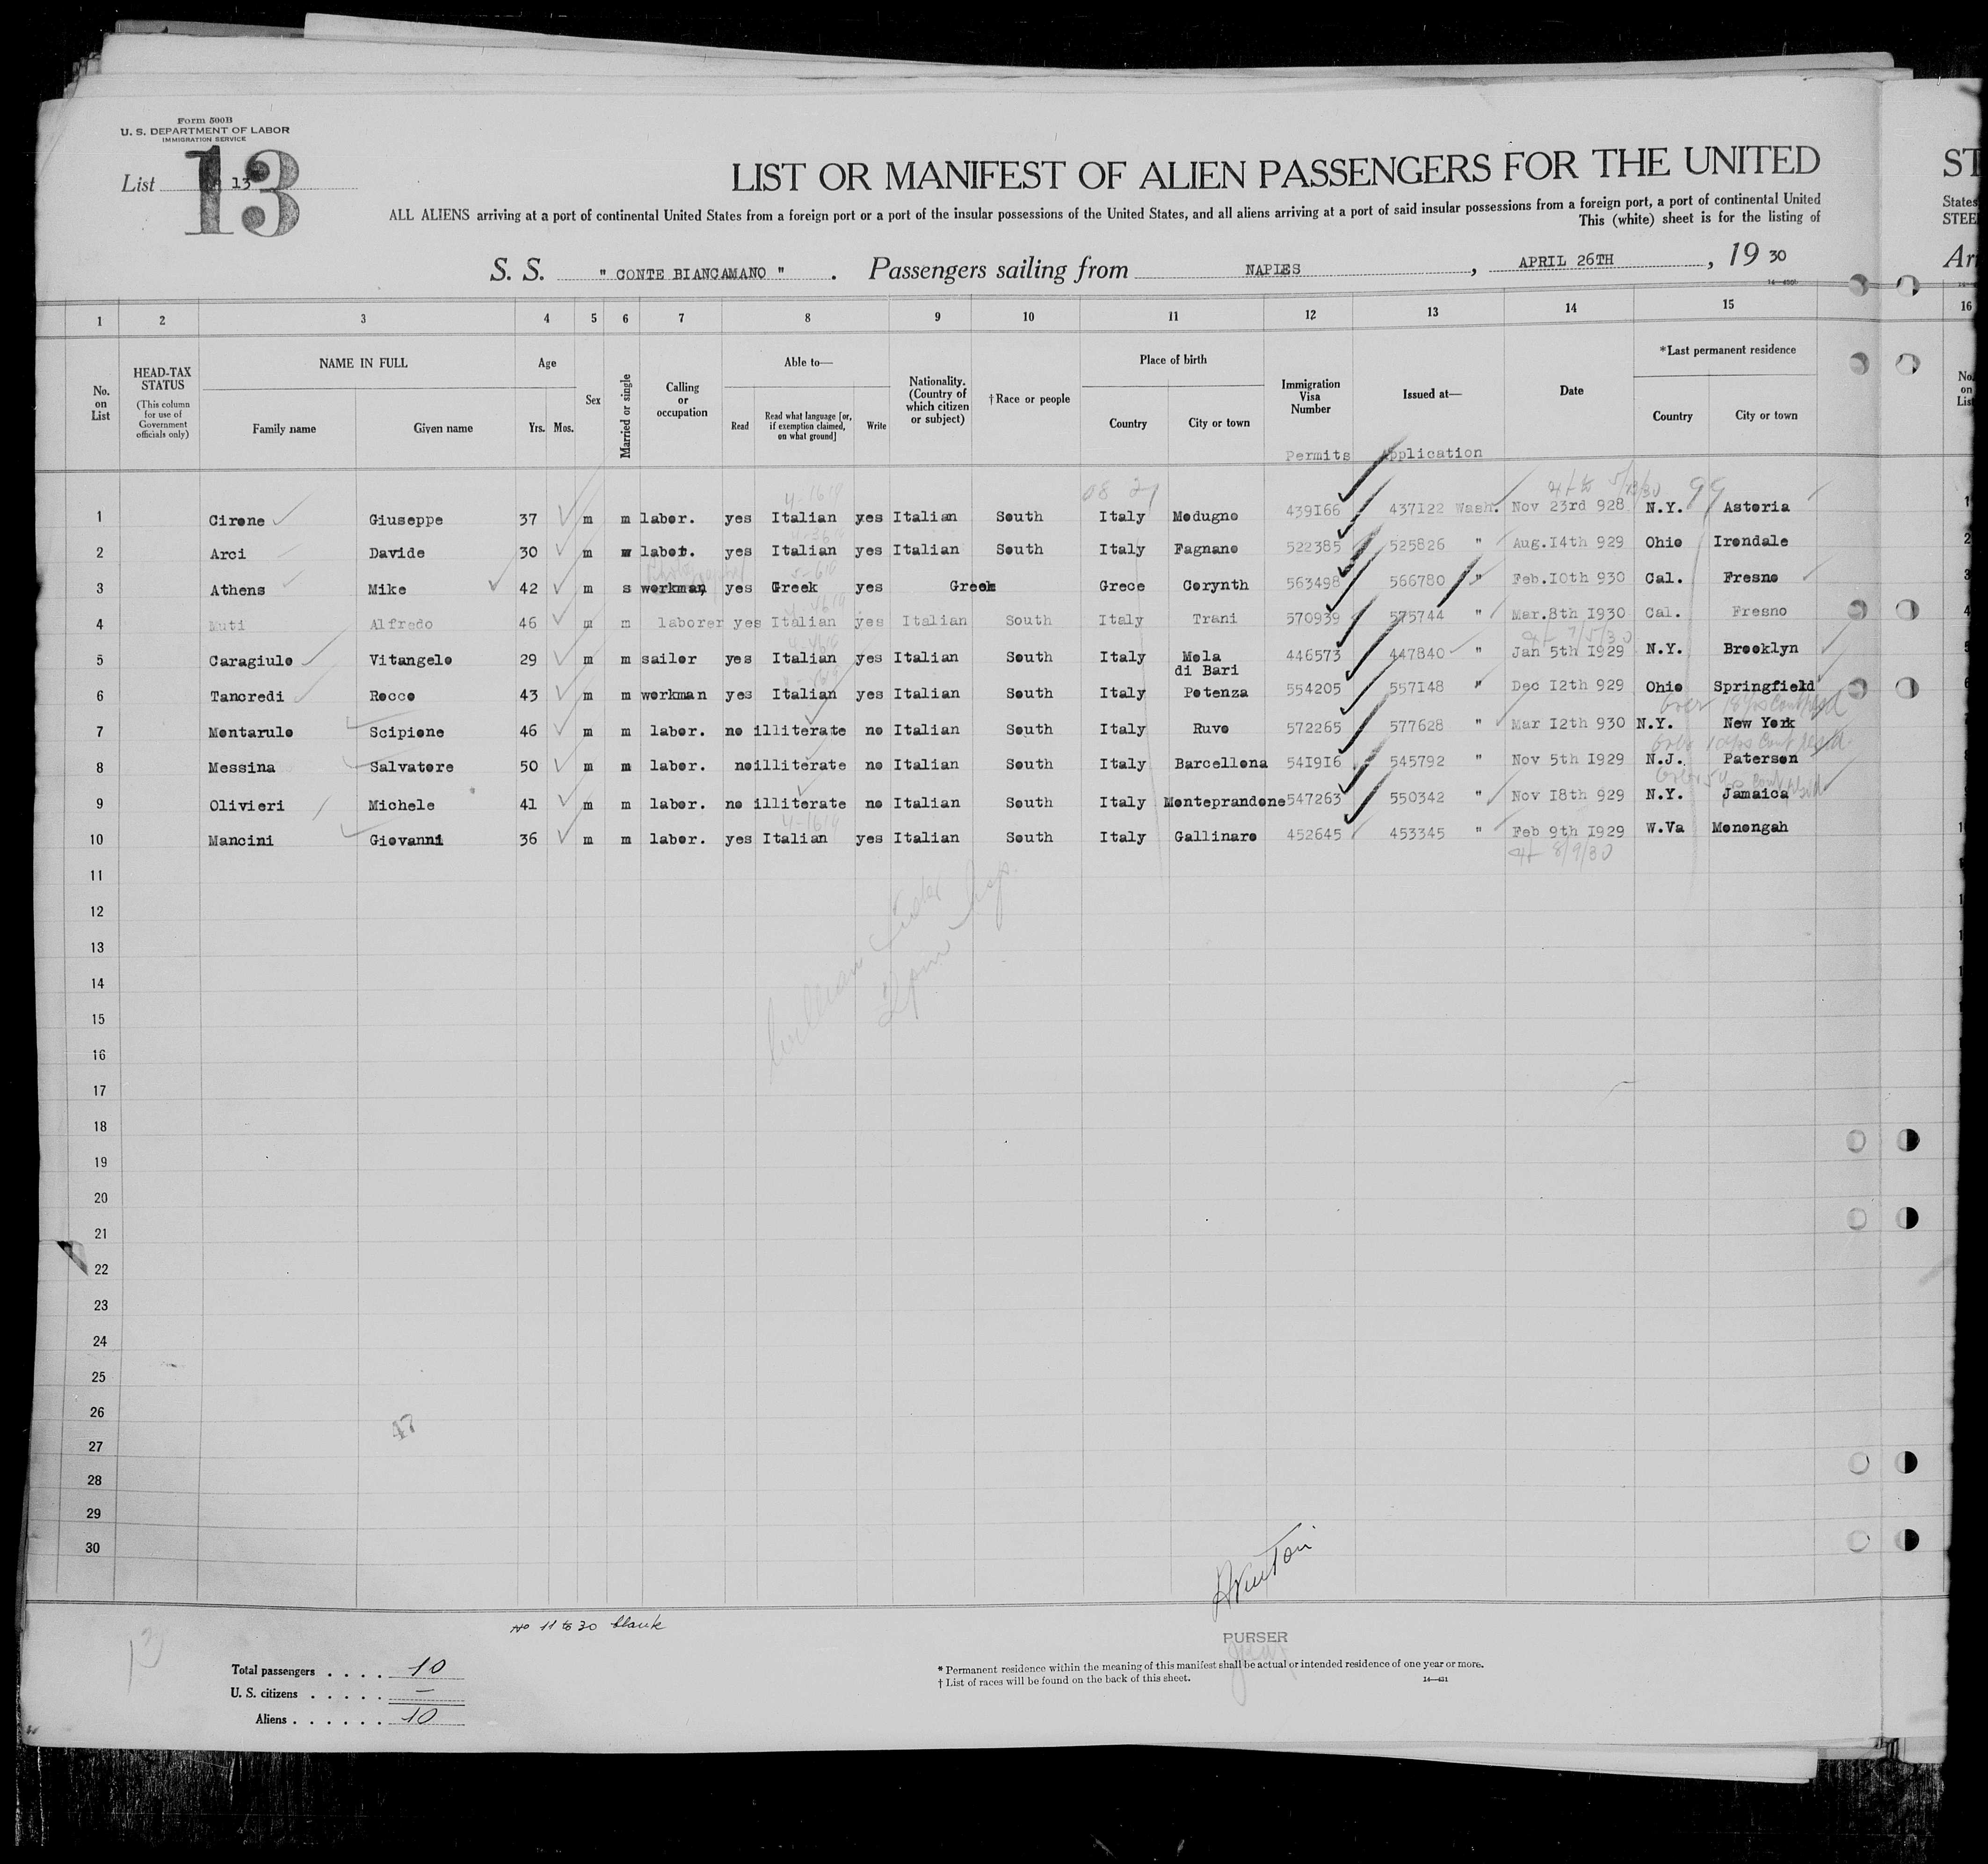 Form 500B
U. S. DEPARTMENT OF LABOR
IMMIGRATION SERVICE
List 13
13
LIST OR MANIFEST OF ALIEN PASSENGERS FOR THE UNITED
ST
ALL ALIENS arriving at a port of continental United States from a foreign port or a port of the insular possessions of the United States, and all aliens arriving at a port of said insular possessions from a foreign port, a port of continental United
States
This (white) sheet is for the listing of
STEE
S. S. " CONTE BIANCAMANO " . Passengers sailing from NAPLES , APRIL 26TH , 19 30
Arr
1 2 3 4 5 6 7 8 9 10 11 12 13 14 15 16
No. on List
HEAD-TAX STATUS
(This column for use of Government officials only)
NAME IN FULL
Family name Given name
Age
Yrs. Mos.
Sex
Married or single
Calling or occupation
Able to—
Read
Read what language [or, if exemption claimed, on what ground]
Write
Nationality. (Country of which citizen or subject)
† Race or people
Place of birth
Country City or town
Immigration Visa Number
Issued at—
Date
*Last permanent residence
Country City or town
No. on List
Permits Application
1 Cirone Giuseppe 37 m m labor. yes Italian yes Italian South Italy Modugno 439166 437122 Wash. Nov 23rd 928 N.Y. Astoria
2 Arci Davide 30 m w labor. yes Italian yes Italian South Italy Fagnano 522385 525826 " Aug.14th 929 Ohio Irondale
3 Athens Mike 42 m s workman, yes Greek yes Greek Grece Corynth 563498 566780 " Feb.10th 930 Cal. Fresno
4 Muti Alfredo 46 m m laborer yes Italian yes Italian South Italy Trani 570939 575744 " Mar.8th 1930 Cal. Fresno
4f 7/5/30
5 Caragiulo Vitangelo 29 m m sailor yes Italian yes Italian South Italy Mola di Bari 446573 447840 " Jan 5th 1929 N.Y. Brooklyn
6 Tancredi Rocco 43 m m workman yes Italian yes Italian South Italy Potenza 554205 557148 " Dec 12th 929 Ohio Springfield
7 Montarulo Scipione 46 m m labor. no illiterate no Italian South Italy Ruvo 572265 577628 " Mar 12th 930 N.Y. New York
8 Messina Salvatore 50 m m labor. no illiterate no Italian South Italy Barcellona 541916 545792 " Nov 5th 1929 N.J. Paterson
9 Olivieri Michele 41 m m labor. no illiterate no Italian South Italy Monteprandone 547263 550342 " Nov 18th 929 N.Y. Jamaica
10 Mancini Giovanni 36 m m labor. yes Italian yes Italian South Italy Gallinaro 452645 453345 " Feb 9th 1929 W.Va Monongah
4f 8/9/30
11
12
13
14
15
16
17
18
19
20
21
22
23
24
25
26
47
27
28
29
30
No 11 to 30 blank
PURSER
Total passengers . . . . 10
U. S. citizens . . . . . —
Aliens . . . . . . 10
* Permanent residence within the meaning of this manifest shall be actual or intended residence of one year or more.
† List of races will be found on the back of this sheet.
14—431